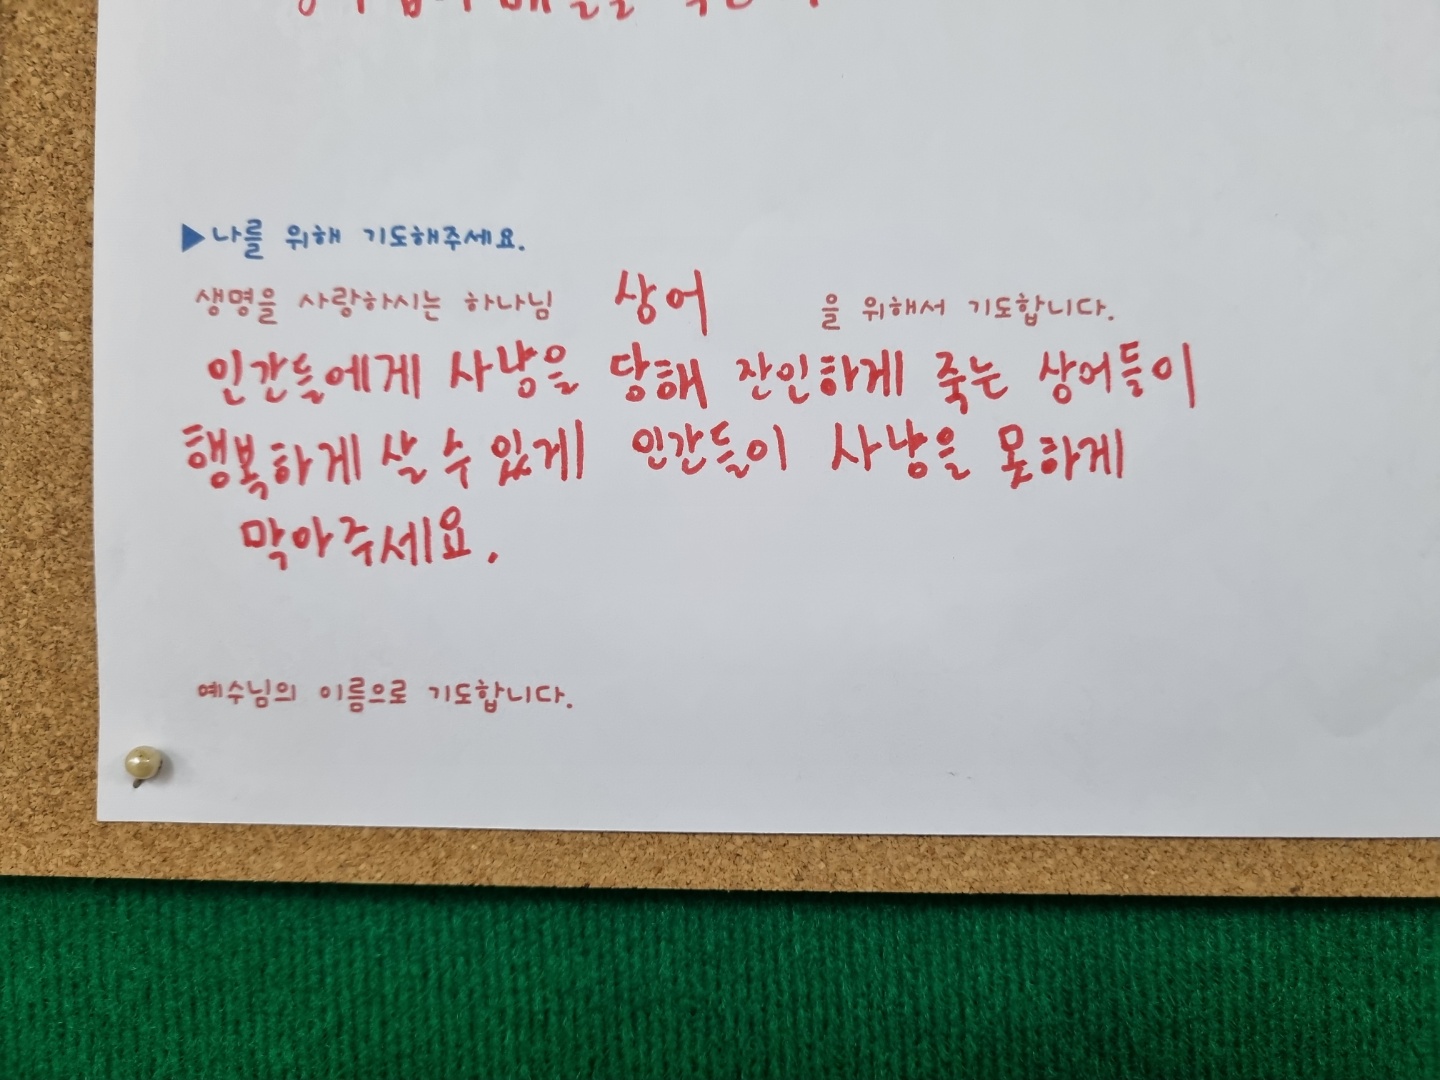 ▶나를 위해 기도해주세요.
생명을 사랑하시는 하나님 상어 을 위해서 기도합니다.
인간들에게 사냥을 당해 잔인하게 죽는 상어들이
행복하게 살 수 있게 인간들이 사냥을 못하게
막아주세요.
예수님의 이름으로 기도합니다.